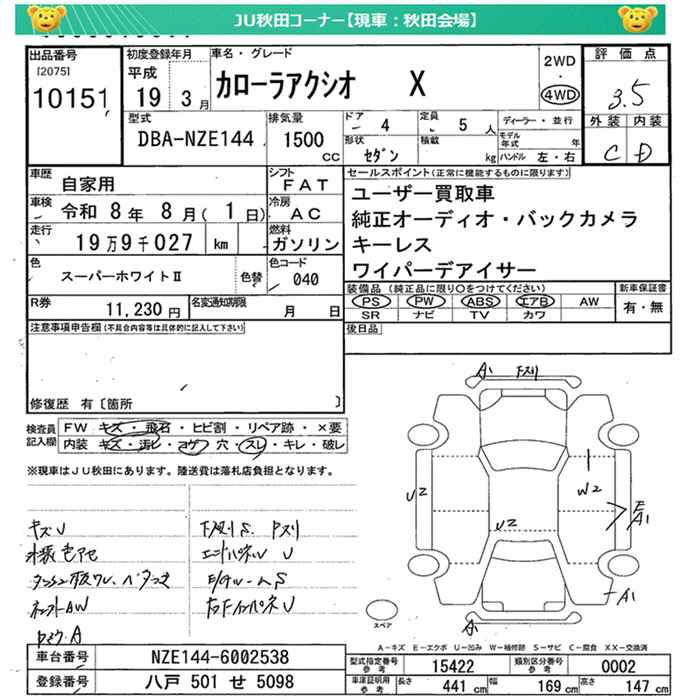 JU秋田コーナー【現車：秋田会場】
出品番号
[2075]
10151
初度登録年月
平成
19 3月
車名・グレード
カローラアクシオ X
2WD
・
4WD
評価点
3.5
外装 内装
C D
型式
DBA-NZE144
排気量
1500
CC
ドア
4
定員
5 人
形状
セダン
積載
kg
ディーラー・並行
モデル年式 年
ハンドル 左・右
車歴
自家用
シフト
FAT
車検
令和 8年 8月( 1日)
冷房
AC
走行
19万9千027 km
燃料
ガソリン
色
スーパーホワイトⅡ
色替
色コード
040
R券
11,230 円
名変通知期限
月 日
セールスポイント(正常に機能するものに限ります)
ユーザー買取車
純正オーディオ・バックカメラ
キーレス
ワイパーデアイサー
装備品 (純正品に限り○をつけてください)
PS PW ABS エアB AW
SR ナビ TV カワ
新車保証書
有・無
後日品
注意事項申告欄(不具合内容等は具体的に記入して下さい)
修復歴 有〔箇所 〕
検査員
記入欄
FW キズ・飛石・ヒビ割・リペア跡・×要
内装 キズ・汚レ・コゲ・穴・スレ・キレ・破レ
※現車はJU秋田にあります。陸送費は落札店負担となります。
キズU
外装色アセ
A
A1
U2
U2
W2
E
A1
A1
A
スペア
A－キズ E－エクボ U－凹み W－補修跡 S－サビ C－腐食 XX－交換済
車台番号
NZE144-6002538
登録番号
八戸 501 せ 5098
型式指定番号
参考
15422
類別区分番号
参考
0002
車庫証明用
参考
長さ
441 cm
幅
169 cm
高さ
147 cm